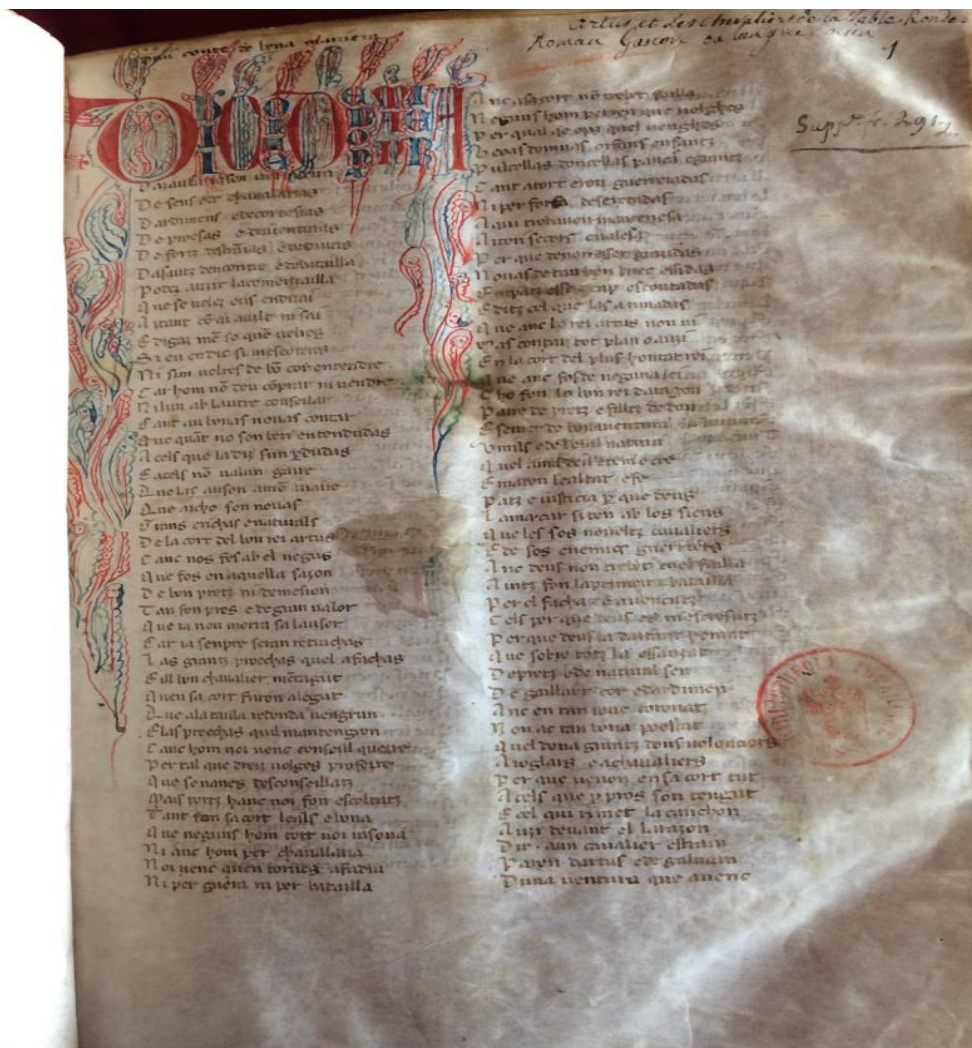 Artus et Les Chevaliers de la Table Ronde
Roman Gascon en langue
1
Supp. fr. 291
Dun conte de bona maniera
Daiauta rason
De sens e de chavalarias
Dardimens e de cortesias
De proesas e daventuras
De fortz e duras
Dasautz dencontre e de batailla
Podetz auzir la comensailla
Que se voletz eus en dirai
Aitant com ai auzit ni sai
E digatz men so quen voletz
Si eu en dic si mescoutetz
Ni sim voletz de bon cor entendre
Car hom non deu comprar ni vendre
Ni lun ab lautre conseilar
Cant au bonas novas contar
Que quant no son ben entendudas
A cels que la ditz sun perdudas
E a cels non valun gaire
Que las auson
Que aicho son novas
Grans e richas e naturals
De la cort del bon rei Artus
Canc nos fes ab el negus
Que fos en aquella sazon
De bon pretz ni de mesion
Tan fon pros e de gran valor
Que ia non morra sa lausor
Car ia senpre seran retrachas
Las granz proechas quel a fachas
E ill bon chavalier mentagut
Quen sa cort furon
Que a la taula redonda vengrun
E las proechas quil mantengron
Canc hom noi venc conseill querre
Per tal que dreitz volges
Que senanes desconseillatz
Mais tortz hanc noi fon escoltatz
Tant fon sa cort leals e bona
Que neguns hom tort noi rasona
Ni anc hom per chavalaria
Noi venc quen tornes a fadia
Ni per guerra ni per batailla
Anc a sa cort non trobet failla
Neguns hom per ren que volghes
Per qual de ops quel venghes
Veoas domnas orfens enfantz
Pulcellas doncellas paucs e granz
Cant a tort eron guerreiadas
Ni per forsa deseretadas
Aqui trobavon mantenensa
Per que devon esser grasidas
Novas de tan bon luec
E en patz esser escoutadas
E ditz cel que las a rimadas
Que anc lo rei Artus non vi
Mas contar tot plan o auzi
En la cort del plus honrat rei
Que anc fos de neguna lei
Cho fon lo bon rei daragon
Paire de pretz e fillz de don
E seiner de bonaventura
Umils e de leial natura
Quel ama deu e tem e cre
E manten lealtat e fe
Patz e iusticia per que deus
Lama car si ten ab los sieus
Queles sos noveltz cavaliers
E de sos enemics guerriers
Anc deus non trobet en el failla
Antz fon la primera batailla
Per el facha e a vencutz
Cels per que deus es mescresutz
Per que deus la daitant honrat
Que sobre totz la essausat
De pretz e de natural sen
De gaillart cor e dardimen
Anc en tan iove coronat
Non ac tan bona poestat
Quel dona granz dons volontiers
A ioglars e a chavaliers
Per que venon en sa cort tut
Acels que per pros son tengut
E cel qui rimet la canchon
Auzi denant el la razon
Dir a un cavalier estrain
Paren dartus e de galvain
Duna ventura que avenc